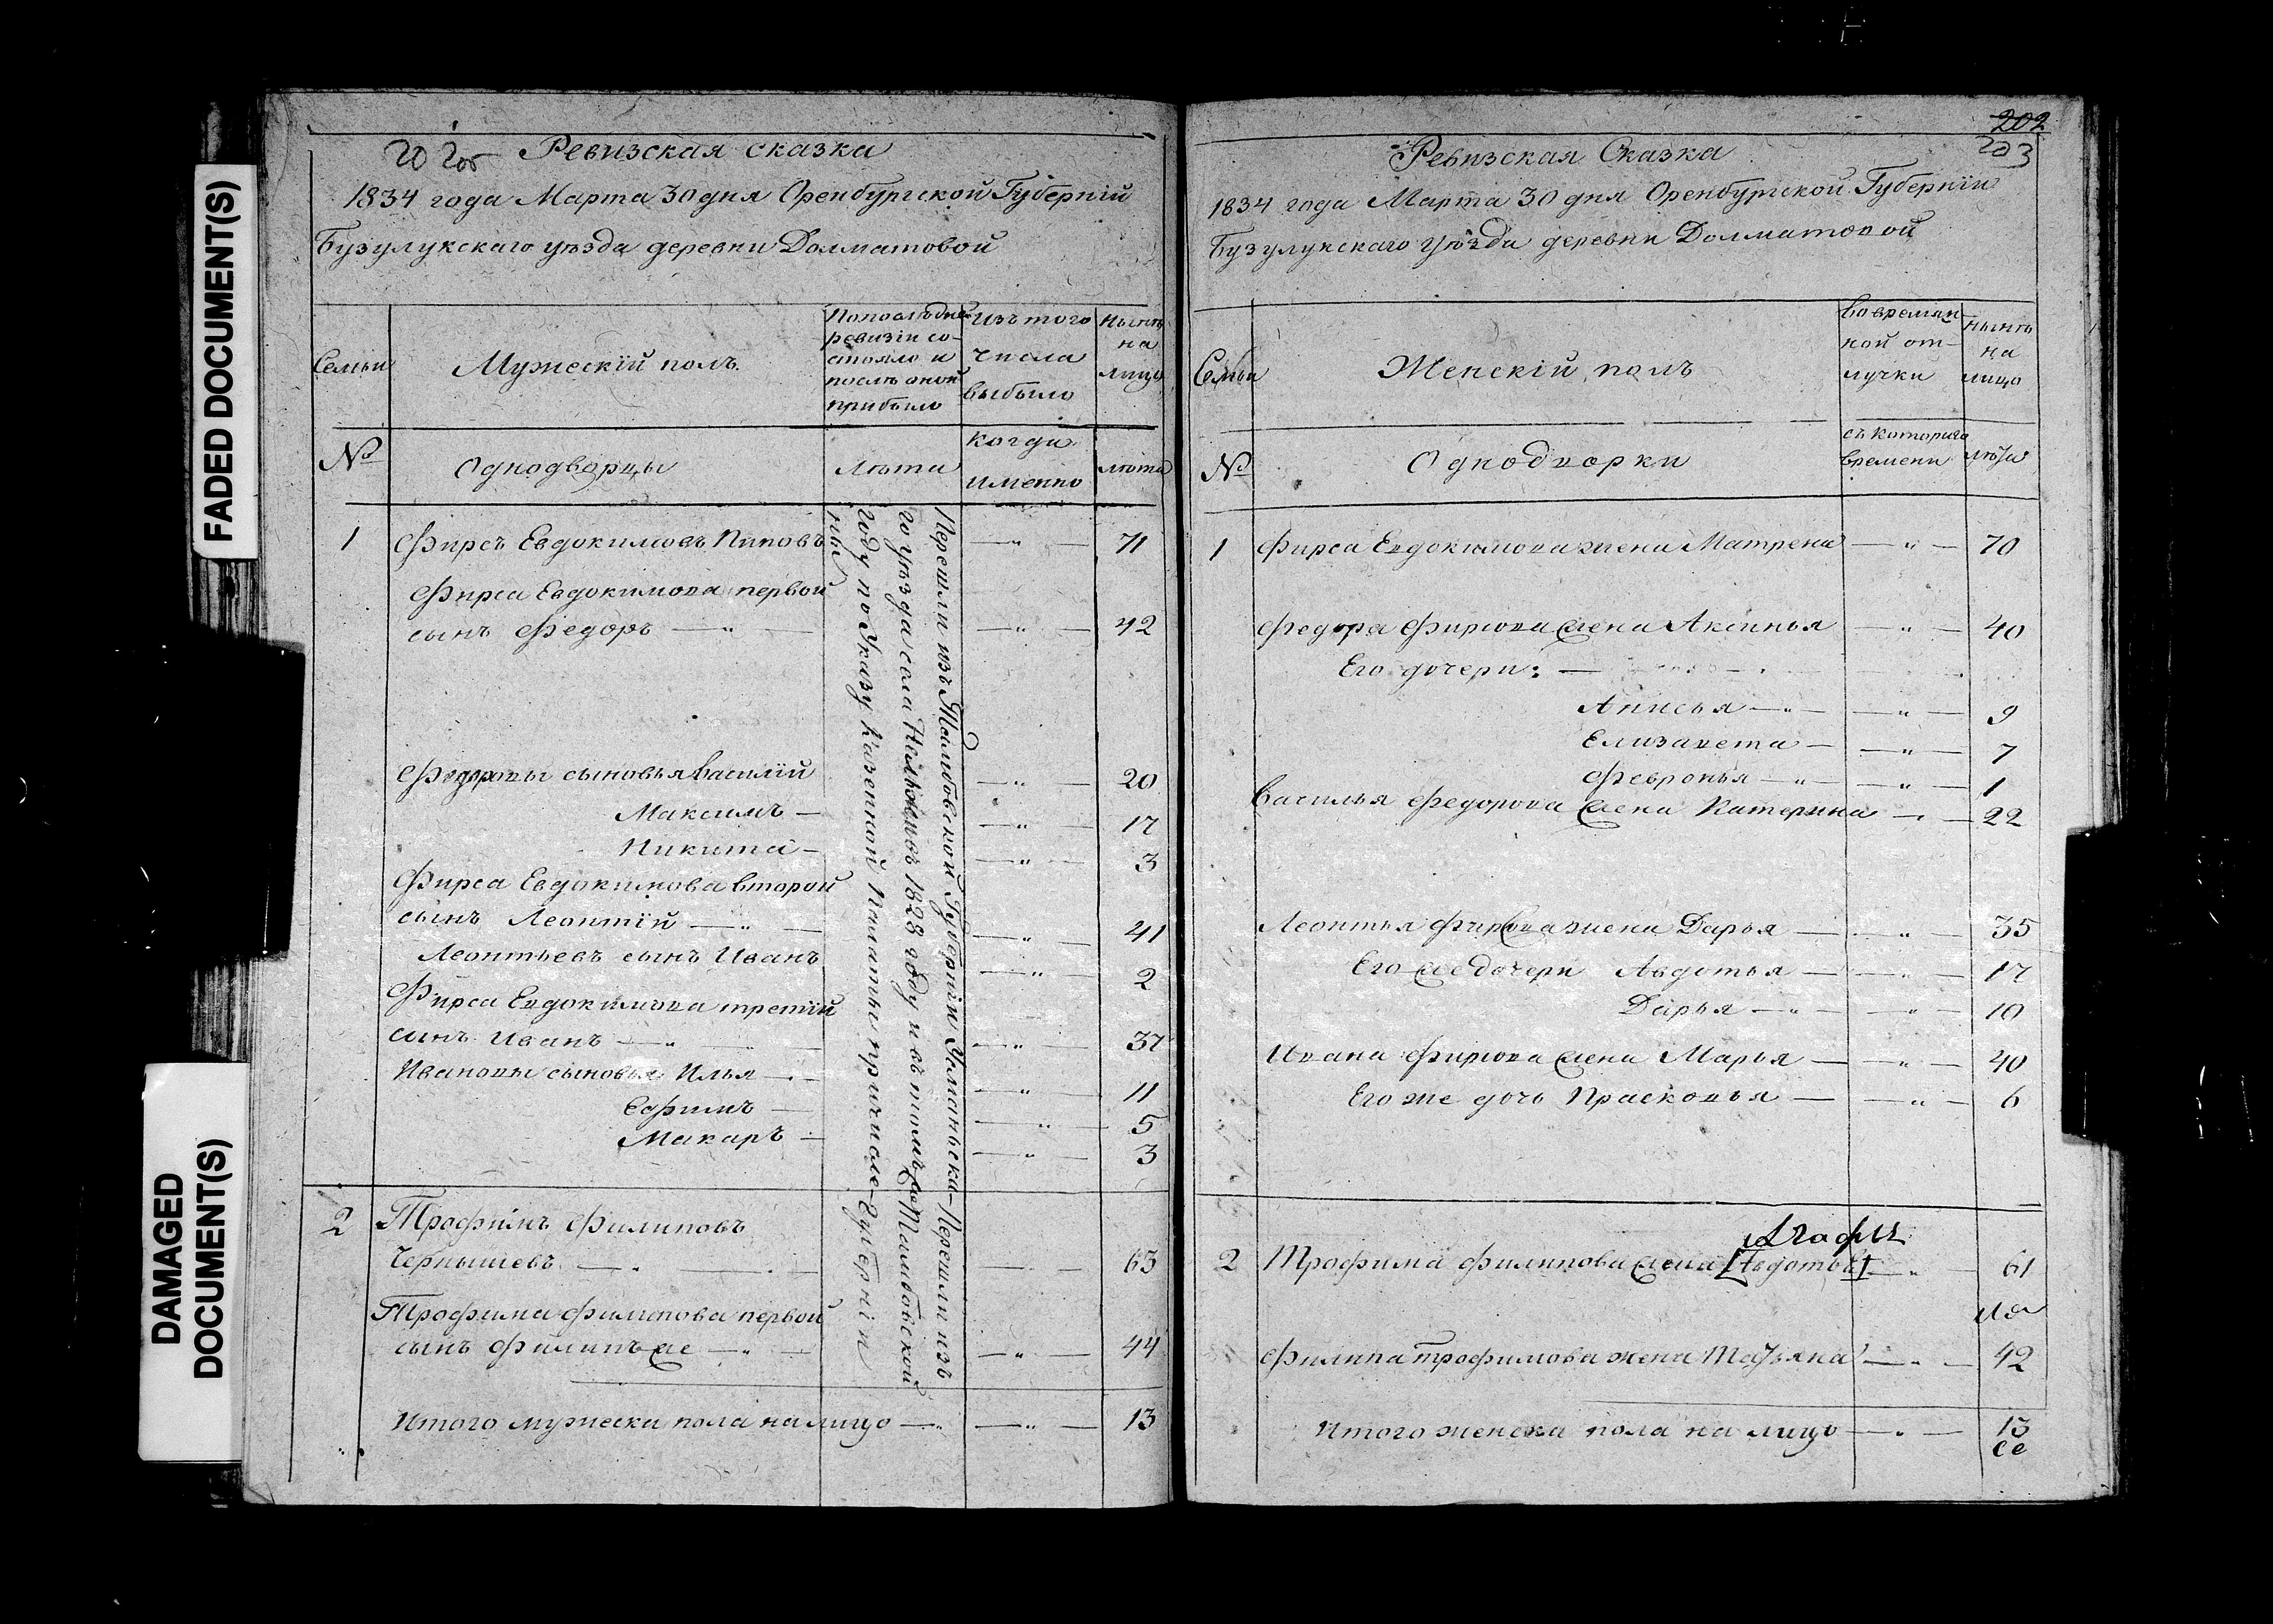 FADED DOCUMENT(S)
DAMAGED
DOCUMENT(S)
Ревизская сказка
1834 года Марта 30 дня Оренбургской Губерніи
Бузулукскаго уѣзда деревни Долматовой
Семьи
Мужескій полъ
По послѣдней
ревизіи со-
стояло и
послѣ оной
прибыло
Изъ того
числа
выбыло
Нынѣ
на
лицо
№
Однодворцы
лѣта
когда
именно
лѣта
1 Фирсъ Евдокимовъ Поповъ — " — 71
Фирса Евдокимова первой
сынъ Федоръ — " — 42
Федоровы сыновья Василій — " — 20
Максимъ — — " — 17
Никита — — " — 3
Фирса Евдокимова второй
сынъ Леонтій — " — 41
Леонтьевъ сынъ Иванъ — " — 2
Фирса Евдокимова третій
сынъ Иванъ — " — 37
Ивановы сыновья Илья — " — 11
Ефимъ — — " — 5
Макаръ — — " — 3
Перешли изъ Тамбовской Губерніи Усманьска-
го уѣзда села 1828 году и въ томъ же
году по Указу Казенной Палаты причисле-
ны
2 Трофимъ Филиповъ
Чернышевъ — 63
Трофима Филипова первой
сынъ Филипъ же — " — 44
Перешли изъ
Тамбовской
Губерніи
Итого мужеска пола на лицо — " — 13
202
203
Ревизская Сказка
1834 года Марта 30 дня Оренбургской Губерніи
Бузулукскаго уѣзда деревни Долматовой
Семьи
Женскій полъ
Во времян-
ной от-
лучки
нынѣ
на
лицо
№
Однодворки
съ котораго
времени
лѣта
1 Фирса Евдокимова жена Матрена — " — 70
Федора Фирсова жена Аксинья — " — 40
Его дочери: —
Анисья — " — 9
Елизавета — " — 7
Февронья — " — 1
Василья Федорова жена Катерина — 22
Леонтья Фирсова жена Дарья — " — 35
Его же дочери Авдотья — " — 17
Дарья — " — 10
Ивана Фирсова жена Марья — " — 40
Его же дочь Прасковья — " — 6
Агафья
2 Трофима Филипова жена [Авдотья] — " — 61
Филипа Трофимова жена Татьяна — " — 42
Итого женска пола на лицо — " — 13